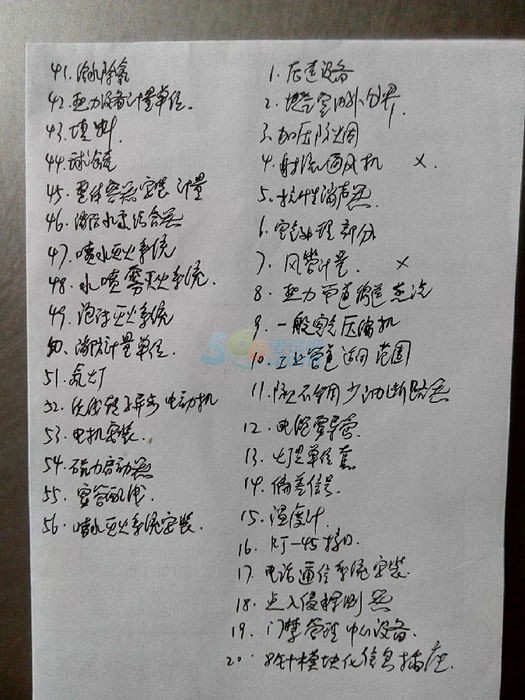 41. 除氧
42. 热力设备计量单位.
43. 填料
44. 球罐
45. 整体容器安装计量
46. 消防水泵结合器
47. 喷水灭火系统
48. 水喷雾灭火系统.
49. 泡沫灭火系统
50. 消防计量单位.
51. 氙灯
52. 绕线转子异步电动机
53. 电机安装.
54. 磁力启动器
55. 穿管配线.
56. 喷水灭火系统安装.
1. 设备
2. 地暖室内外分界.
3. 加压防火阀
4. 射流通风机 ×.
5. 抗性消声器.
6. 空气处理部分
7. 风管计量. ×
8. 热力管道
9. 一般空气压缩机
10. 工业管道适用范围
11. 不用少油断路器
12. 电缆
13. 单位
14. 偏差信号.
15. 温度计.
16. RJ-45接口.
17. 电话通信系统安装.
18. 点入侵探测器
19. 门禁管理中心设备.
20. 8针模块化信息插座.